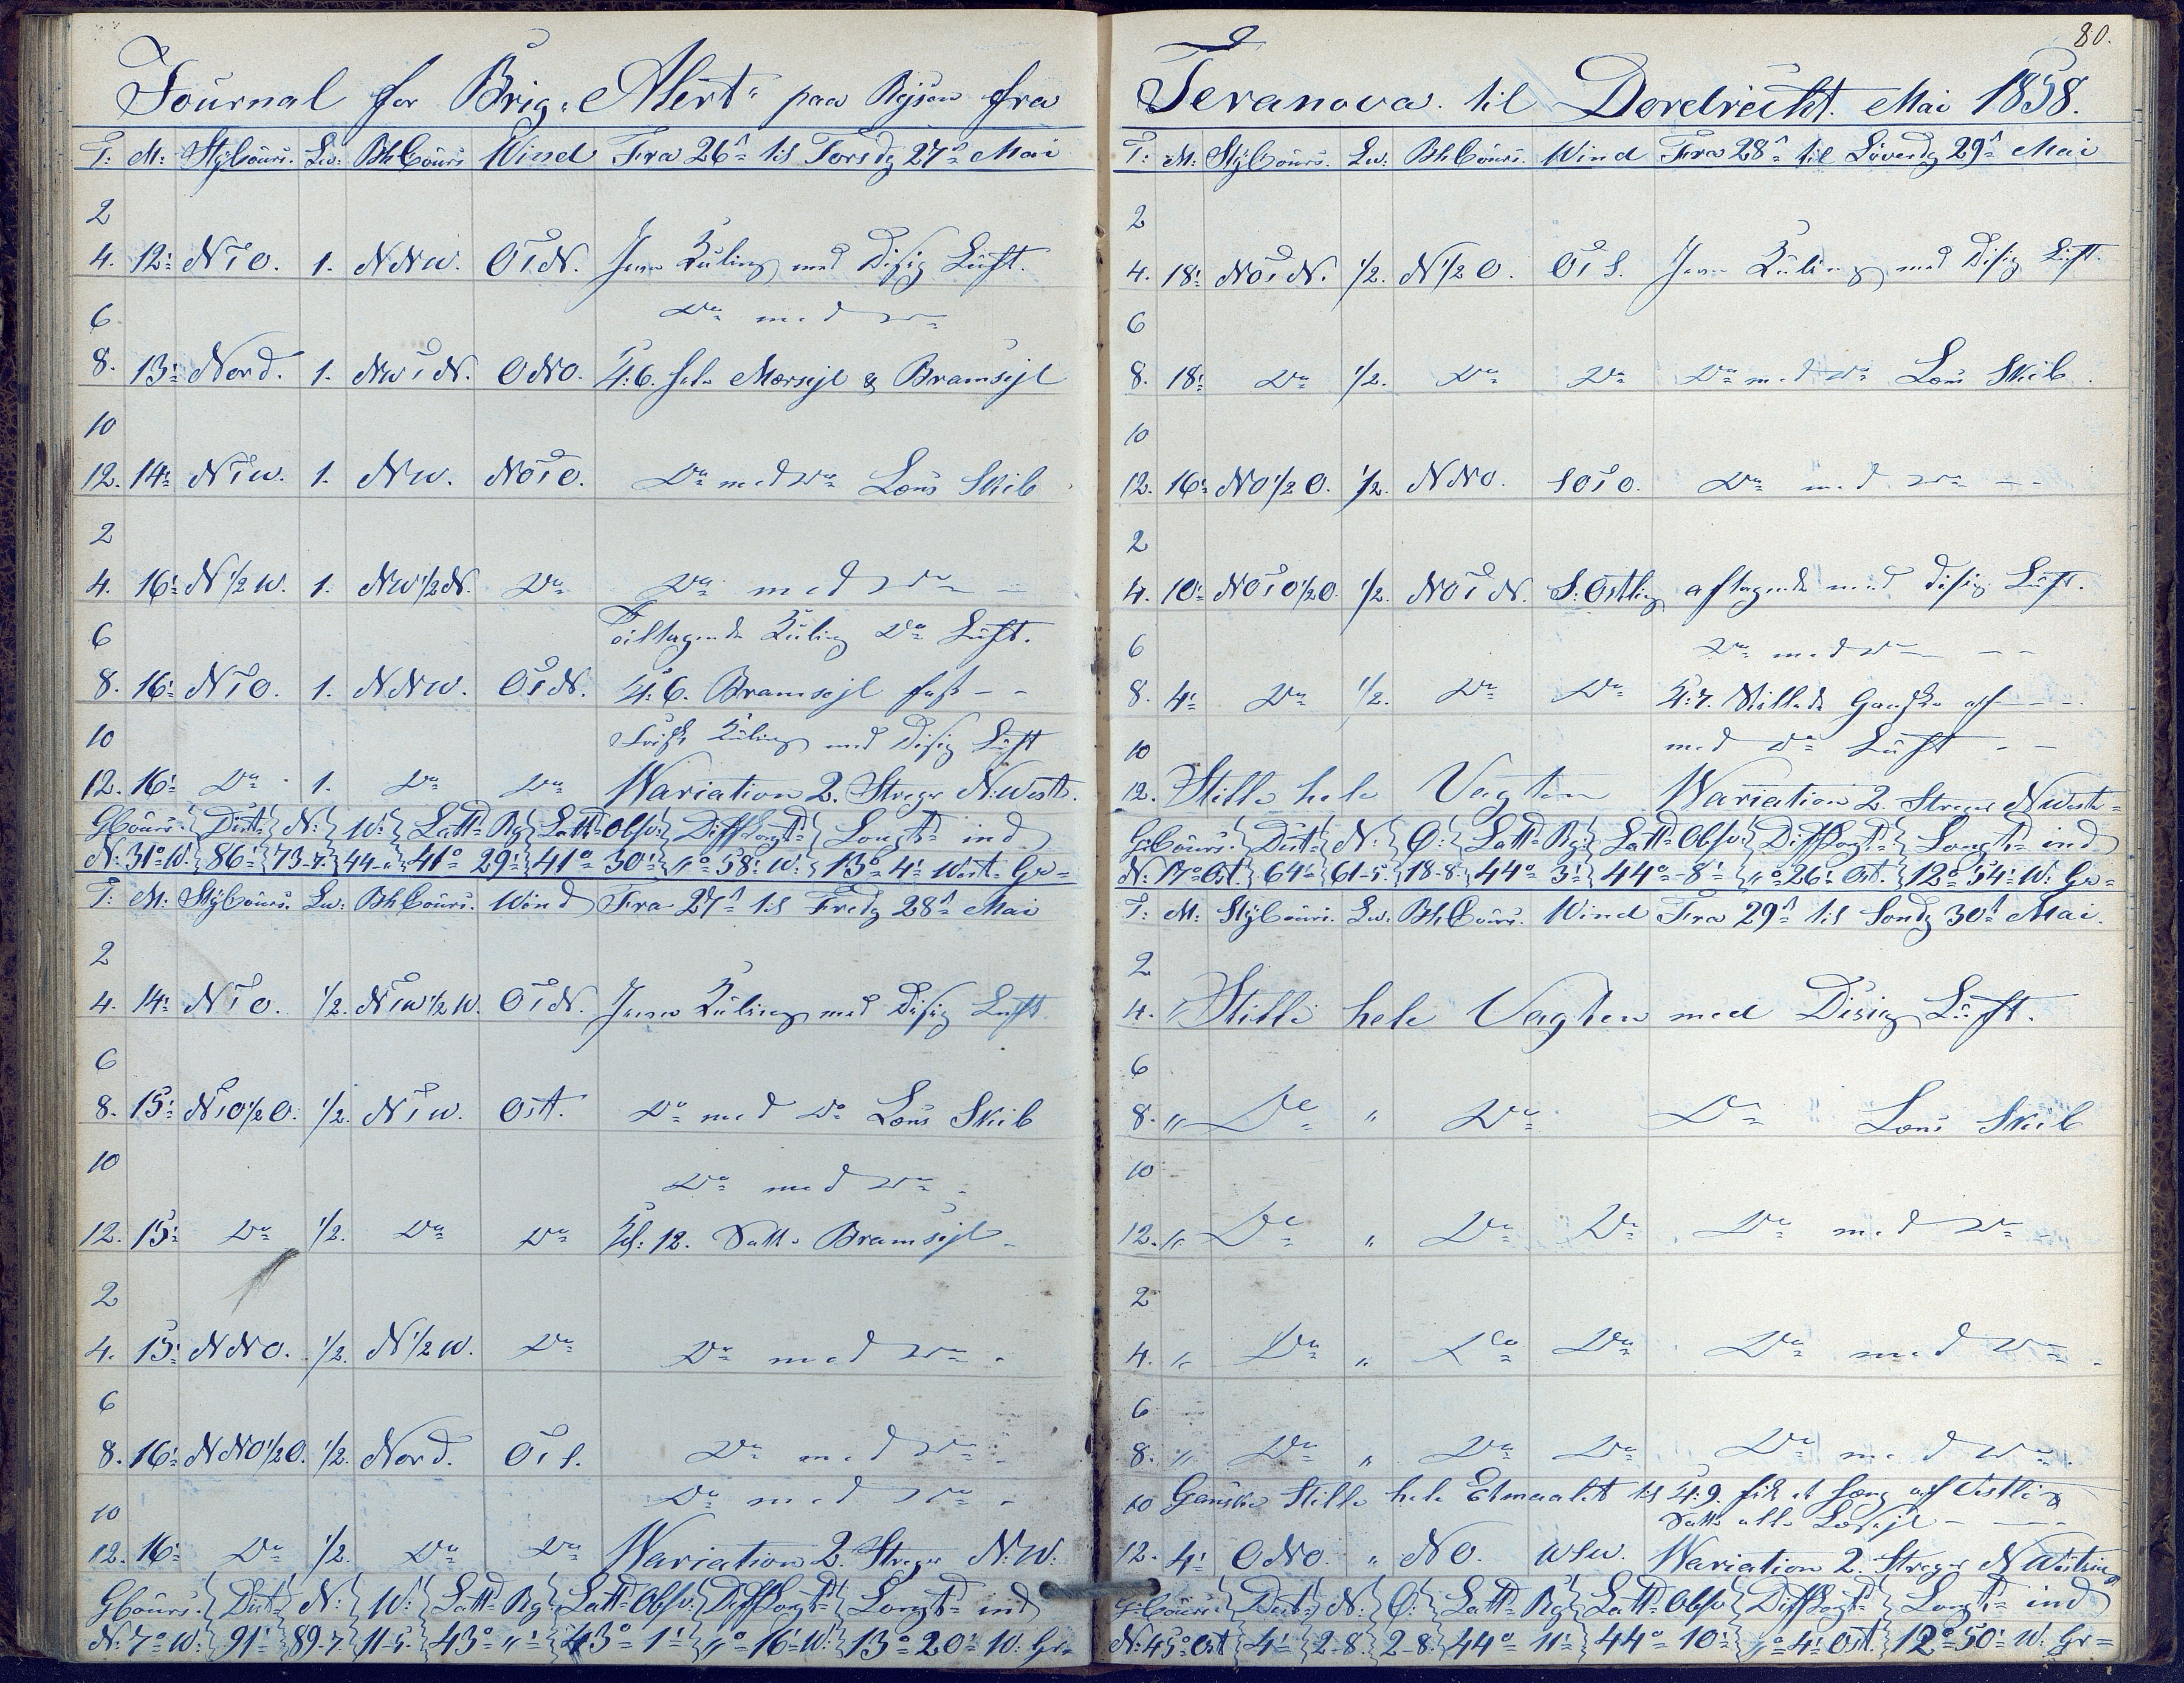 Journal for Brig "Alert" paa Rejsen fra
T: M: StýCours. Lw: BhCours Wind Fra 26de til Torsdg 27de Mai
2
4. 12' NtO. 1. NNW. OtN. Jevn Kuling med Disig Luft.
6 Do med Do
8. 13' Nord. 1. NWtN. ONO. Kl: 6. Mersejl & Bramsejl
10
12. 14' NtW. 1. NW. NOtO. Do med Do Lens Skib
2
4. 16' N1/2W. 1. NW1/2N. Do Do med Do
6 Tiltagende Kuling Do Luft.
8. 16' NtO. 1. NNW. OtN. Kl: 6. Bramsejl fast - -
10 Frisk Kuling med Disig Luft
12. 16' Do 1. Do Do Wariation 2. Streger N:West.
GCours: Dist: N: W: Latt: Rg: Latt: Obsv: DiffLongt: Longt: ind
N: 31° W. 86' 73-7. 44-" 41° 29' 41° 30' "° 58' W: 13° 4' West. Gr=
T: M: StýCours. Lw: BhCours. Wind Fra 27de til Fredg 28de Mai
2
4. 14' NtO. 1/2. NtW1/2W. OtN. Jevn Kuling med Disig Luft
6
8. 15' NtO1/2O. 1/2. NtW. Ost. Do med Do Lens Skib
10 Do med Do
12. 15' Do 1/2. Do Do Kl: 12. Satte Bramsejl
2
4. 15' NNO. 1/2. N1/2W. Do Do med Do
6
8. 16' NNO1/2O. 1/2. Nord. OtS. Do med Do
10 Do med Do
12. 16' Do 1/2. Do Do Wariation 2. Streger N:W:
GCours: Dist: N: W: Latt: Rg: Latt: Obsv: DiffLongt: Longt: ind
N: 7° W: 91' 89-7. 11-5. 43° "' 43° 1' "° 16' W: 13° 20' W: Gr=
80.
Teranova. til Dordrecht. Mai 1858.
T: M: StýCours. Lw: BhCours. Wind Fra 28de til Löverdg 29de Mai
2
4. 18' NOtN. 1/2. N1/2O. OtS. Jevn Kuling med Disig Luft.
6
8. 18' Do 1/2. Do Do Do med Do Lens Skib.
10
12. 16' NO1/2O. 1/2. NNO. SOtO. Do med Do - -
2
4. 10' NOtO1/2O. 1/2. NOtN. S:Ostlig aftagende med disig Luft.
6 Do med Do - -
8. 4' Do 1/2. Do Do Kl: 7. Stillede Ganske af - -
10 med Do Luft - -
12. Stille hele Vagten Wariation 2. Streger NWest=
GCours: Dist: N: O: Latt: Rg: Latt: Obsv: DiffLongt: Longt: ind
N: 17° Ost. 64' 61-5. 18-8. 44° 3' 44° 8' "° 26' Ost. 12° 54' W: Gr=
T: M: StýCours. Lw: BhCours. Wind Fra 29de til Sondg 30de Mai.
2
4. " Stille hele Vagten med Disig Luft.
6
8. " Do " Do Do Lens Skib
10
12. " Do " Do Do Do med Do
2
4. " Do " Do Do Do med Do
6
8. " Do " Do Do Do med Do
10 Ganske Stille hele Etmaalet til Kl: 9. fik et af Vestlig
Satte alle Læsejl - -
12. 4' ONO. " NO. WSW. Wariation 2. Streger N Westring
GCours: Dist: N: O: Latt: Rg: Latt: Obsv: DiffLongt: Longt: ind
N: 45° Ost 4' 2-8. 2-8. 44° 11' 44° 10' "° 4' Ost. 12° 50' W: Gr=